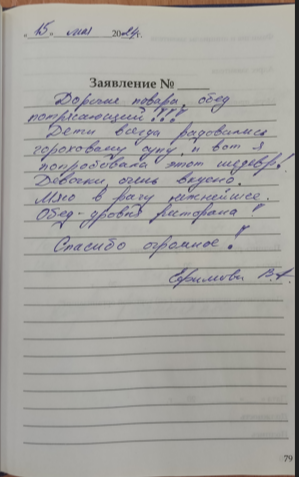 "15" мая 2024г.
Заявление №
Дорогие повара, обед
потрясающий!!!
Дети всегда радовались
гороховому супу и вот я
попробовала этот шедевр!
Девочки, очень вкусно.
Мясо в рагу нежнейшее.
Обед-уровня ресторана!
Спасибо огромное!
Ефимова В.А.
79